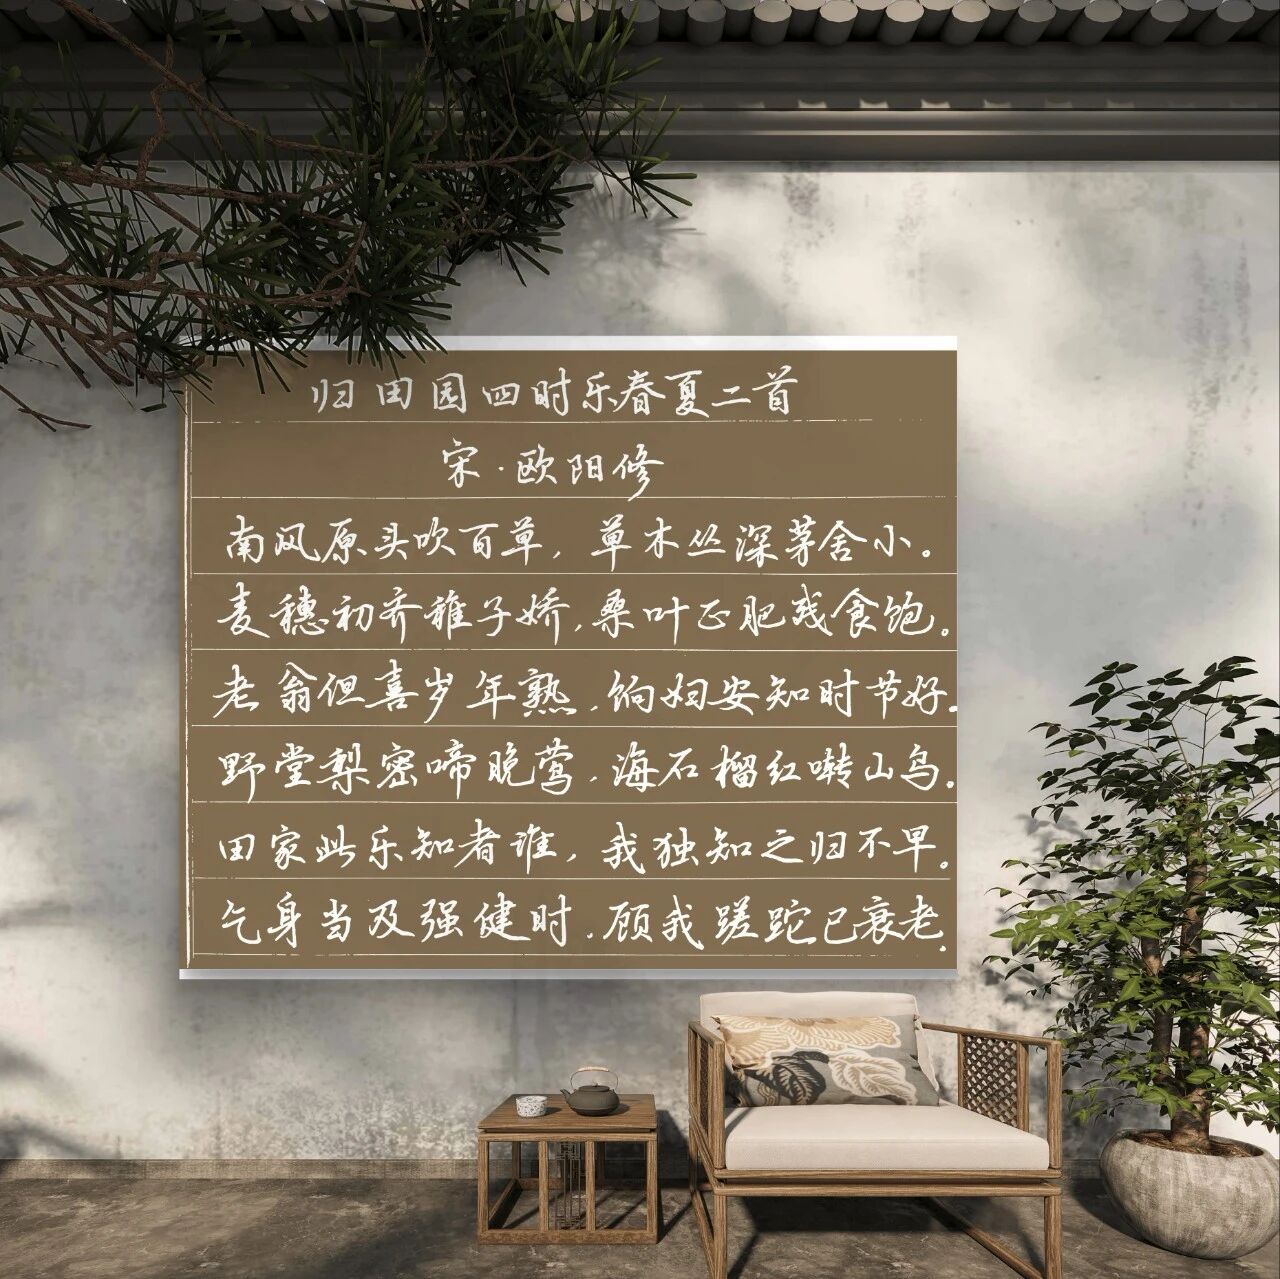 归田园四时乐春夏二首
宋·欧阳修
南风原头吹百草，草木丛深茅舍小。
麦穗初齐稚子娇，桑叶正肥蚕食饱。
老翁但喜岁年熟，饷妇安知时节好。
野堂梨密啼晚莺，海石榴红啭山鸟。
田家此乐知者谁，我独知之归不早。
乞身当及强健时，顾我蹉跎已衰老。